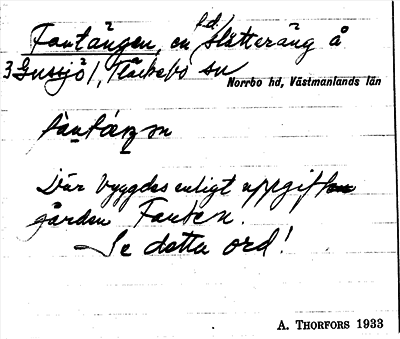 f.d.
Fantängen, en slätteräng å
3 Gussjö /, Fläckebo sn
Norrbo hd, Västmanlands län
Där byggdes enligt uppgiften
gården Fanten.
Se detta ord!
A. THORFORS 1933